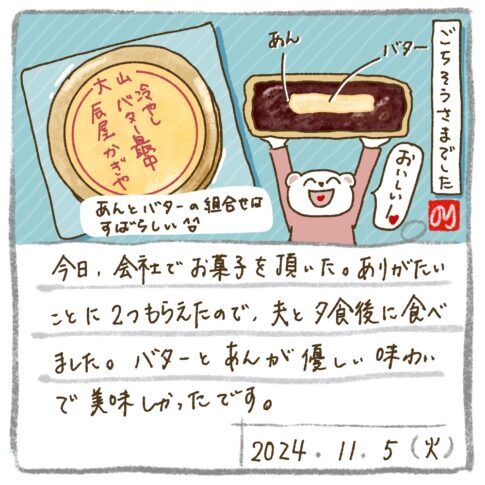 ごちそうさまでした
あん
バター
冷やし
山バター最中
大辰屋かぎや
おいしいー♥
あんとバターの組合せは
すばらしい
今日、会社でお菓子を頂いた。ありがたい
ことに2つもらえたので、夫と夕食後に食べ
ました。バターとあんが優しい味わい
で美味しかったです。
2024.11.5(火)